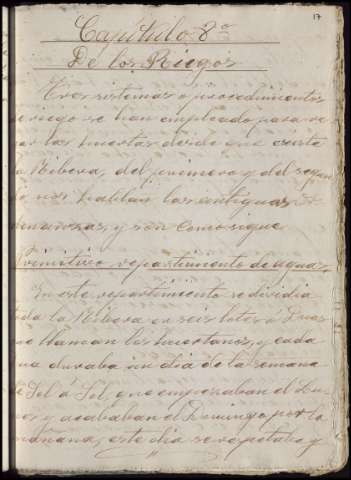 17
Capítulo 8º
De los Riegos
Tres sistemas o procedimientos
de riego se han empleado para re-
gar las huertas desde que existe
la Ribera, del primero y del segun-
do nos hablan las antiguas Or-
denanzas, y son como sigue
Primitivo repartimiento de aguas,
En este repartimiento se dividia
toda la Ribera en seis lotes, ó
que llaman los huertanos, y cada
una duraba un dia de la semana
de Sol á Sol, que empezaban el Lu-
nes, y acababan el Domingo por la
mañana, este dia se respetaba y